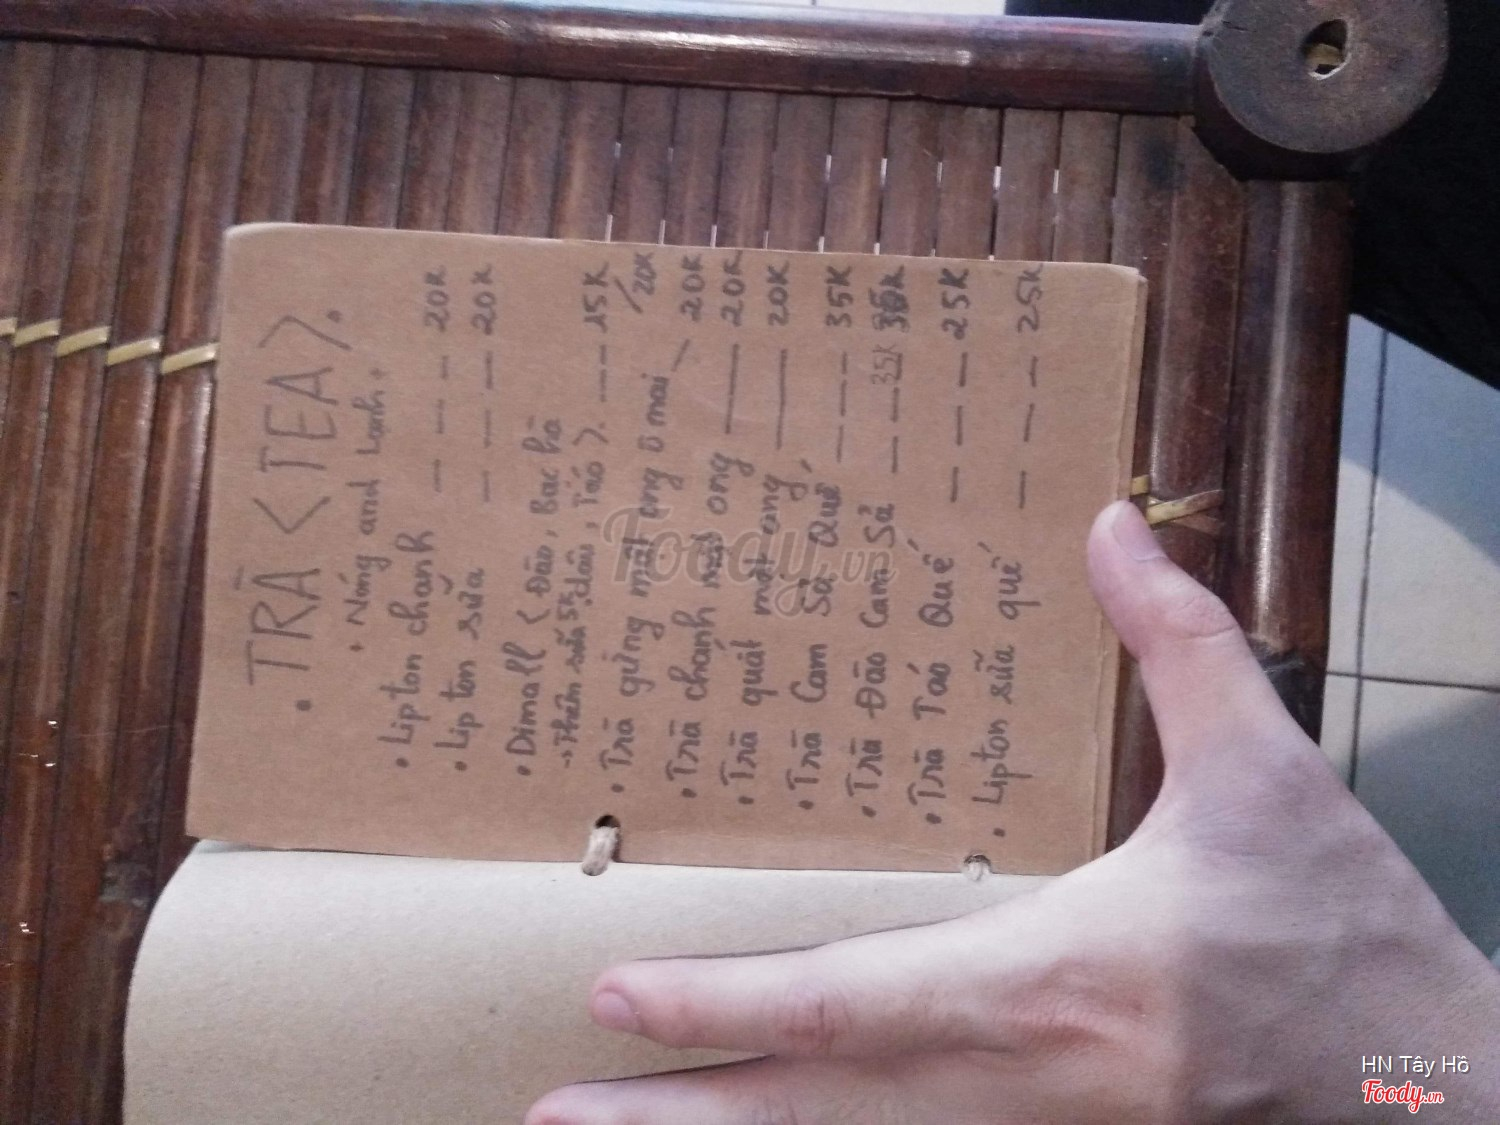 • TRÀ <TEA>.
• Nóng and Lạnh •
• Lipton chanh — — — 20K
• Lipton sữa — — — 20K
• Dimall ( Đào, Bạc hà
→ Thêm sữa 5K, dâu, Táo ). — — — 15K
/20K
• Trà gừng mật ong ô mai — 20K
• Trà chanh mật ong — 20K
• Trà quất mật ong — 20K
• Trà Cam Sả Quế — — — 35K
• Trà Đào Cam Sả — — 35K
• Trà Táo Quế — — — 25K
• Lipton sữa quế — — — 25K
Foody.vn
HN Tây Hồ
Foody.vn